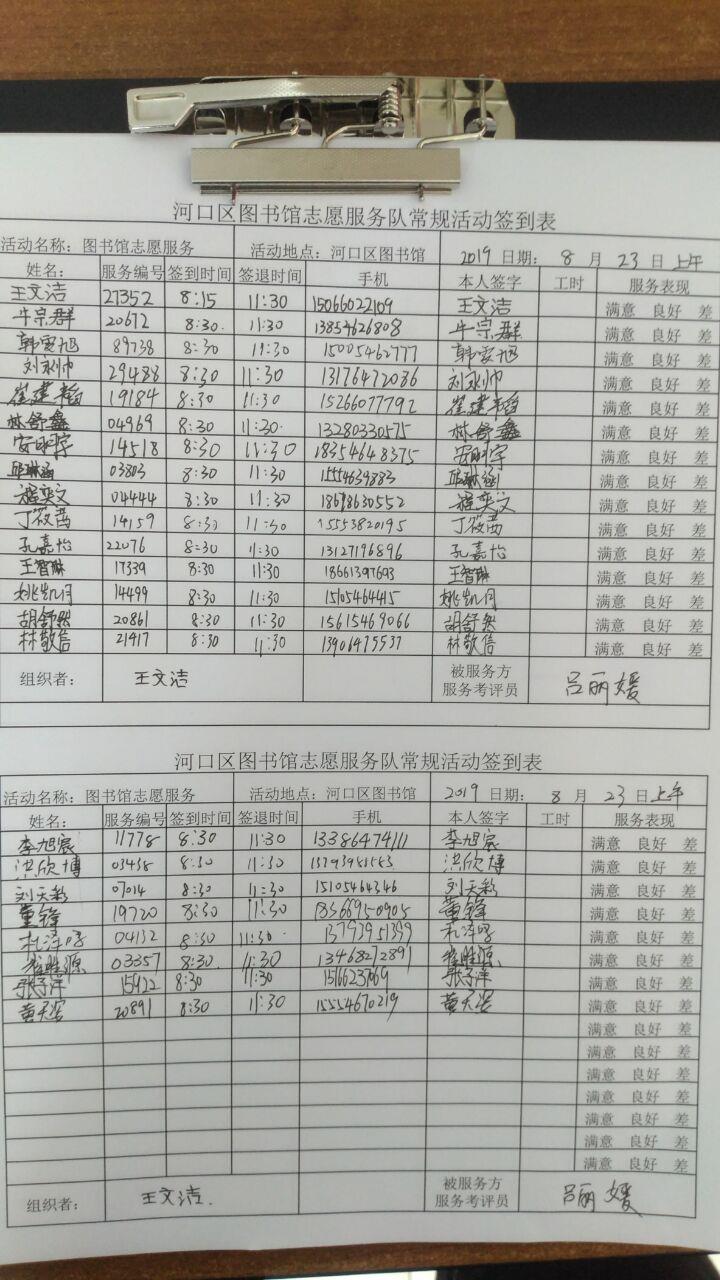 河口区图书馆志愿服务队常规活动签到表
活动名称：图书馆志愿服务 活动地点：河口区图书馆 2019 日期： 8 月 23 日 上午
姓名： 服务编号 签到时间 签退时间 手机 本人签字 工时 服务表现
王文洁 27352 8:15 11:30 15066022109 王文洁 满意 良好 差
牛宗群 20672 8:30 11:30 13854626808 牛宗群 满意 良好 差
韩雯旭 89738 8:30 11:30 15005462777 韩雯旭 满意 良好 差
刘永帅 29488 8:30 11:30 13176472086 刘永帅 满意 良好 差
崔建韬 19184 8:30 11:30 15266077792 崔建韬 满意 良好 差
林舒鑫 04969 8:30 11:30 13280330575 林舒鑫 满意 良好 差
安明宇 14518 8:30 11:30 18354648375 安明宇 满意 良好 差
邱琳涵 03803 8:30 11:30 15554639883 邱琳涵 满意 良好 差
程奕文 04444 8:30 11:30 18698630552 程奕文 满意 良好 差
丁筱茜 14159 8:30 11:30 15553820195 丁筱茜 满意 良好 差
孔嘉怡 22076 8:30 11:30 13127196896 孔嘉怡 满意 良好 差
王智琳 17339 8:30 11:30 18661397693 王智琳 满意 良好 差
姚凯月 14499 8:30 11:30 15105464415 姚凯月 满意 良好 差
胡舒然 20861 8:30 11:30 15615469066 胡舒然 满意 良好 差
林敬信 21417 8:30 11:30 13906475537 林敬信 满意 良好 差
组织者： 王文洁 被服务方 服务考评员 吕丽媛
河口区图书馆志愿服务队常规活动签到表
活动名称：图书馆志愿服务 活动地点：河口区图书馆 2019 日期： 8 月 23 日 上午
姓名： 服务编号 签到时间 签退时间 手机 本人签字 工时 服务表现
李旭宸 11778 8:30 11:30 13386474111 李旭宸 满意 良好 差
洪欣博 03438 8:30 11:30 洪欣博 满意 良好 差
刘天彩 07014 8:30 11:30 15105464346 刘天彩 满意 良好 差
董锋 19720 8:30 11:30 18366950905 董锋 满意 良好 差
04132 8:30 11:30 13793951399 满意 良好 差
崔胜源 03357 8:30 11:30 13468272891 崔胜源 满意 良好 差
张子洋 15922 8:30 11:30 15166237069 张子洋 满意 良好 差
黄天姿 20891 8:30 11:30 15554670219 黄天姿 满意 良好 差
满意 良好 差
满意 良好 差
满意 良好 差
满意 良好 差
满意 良好 差
满意 良好 差
满意 良好 差
组织者： 王文洁. 被服务方 服务考评员 吕丽媛